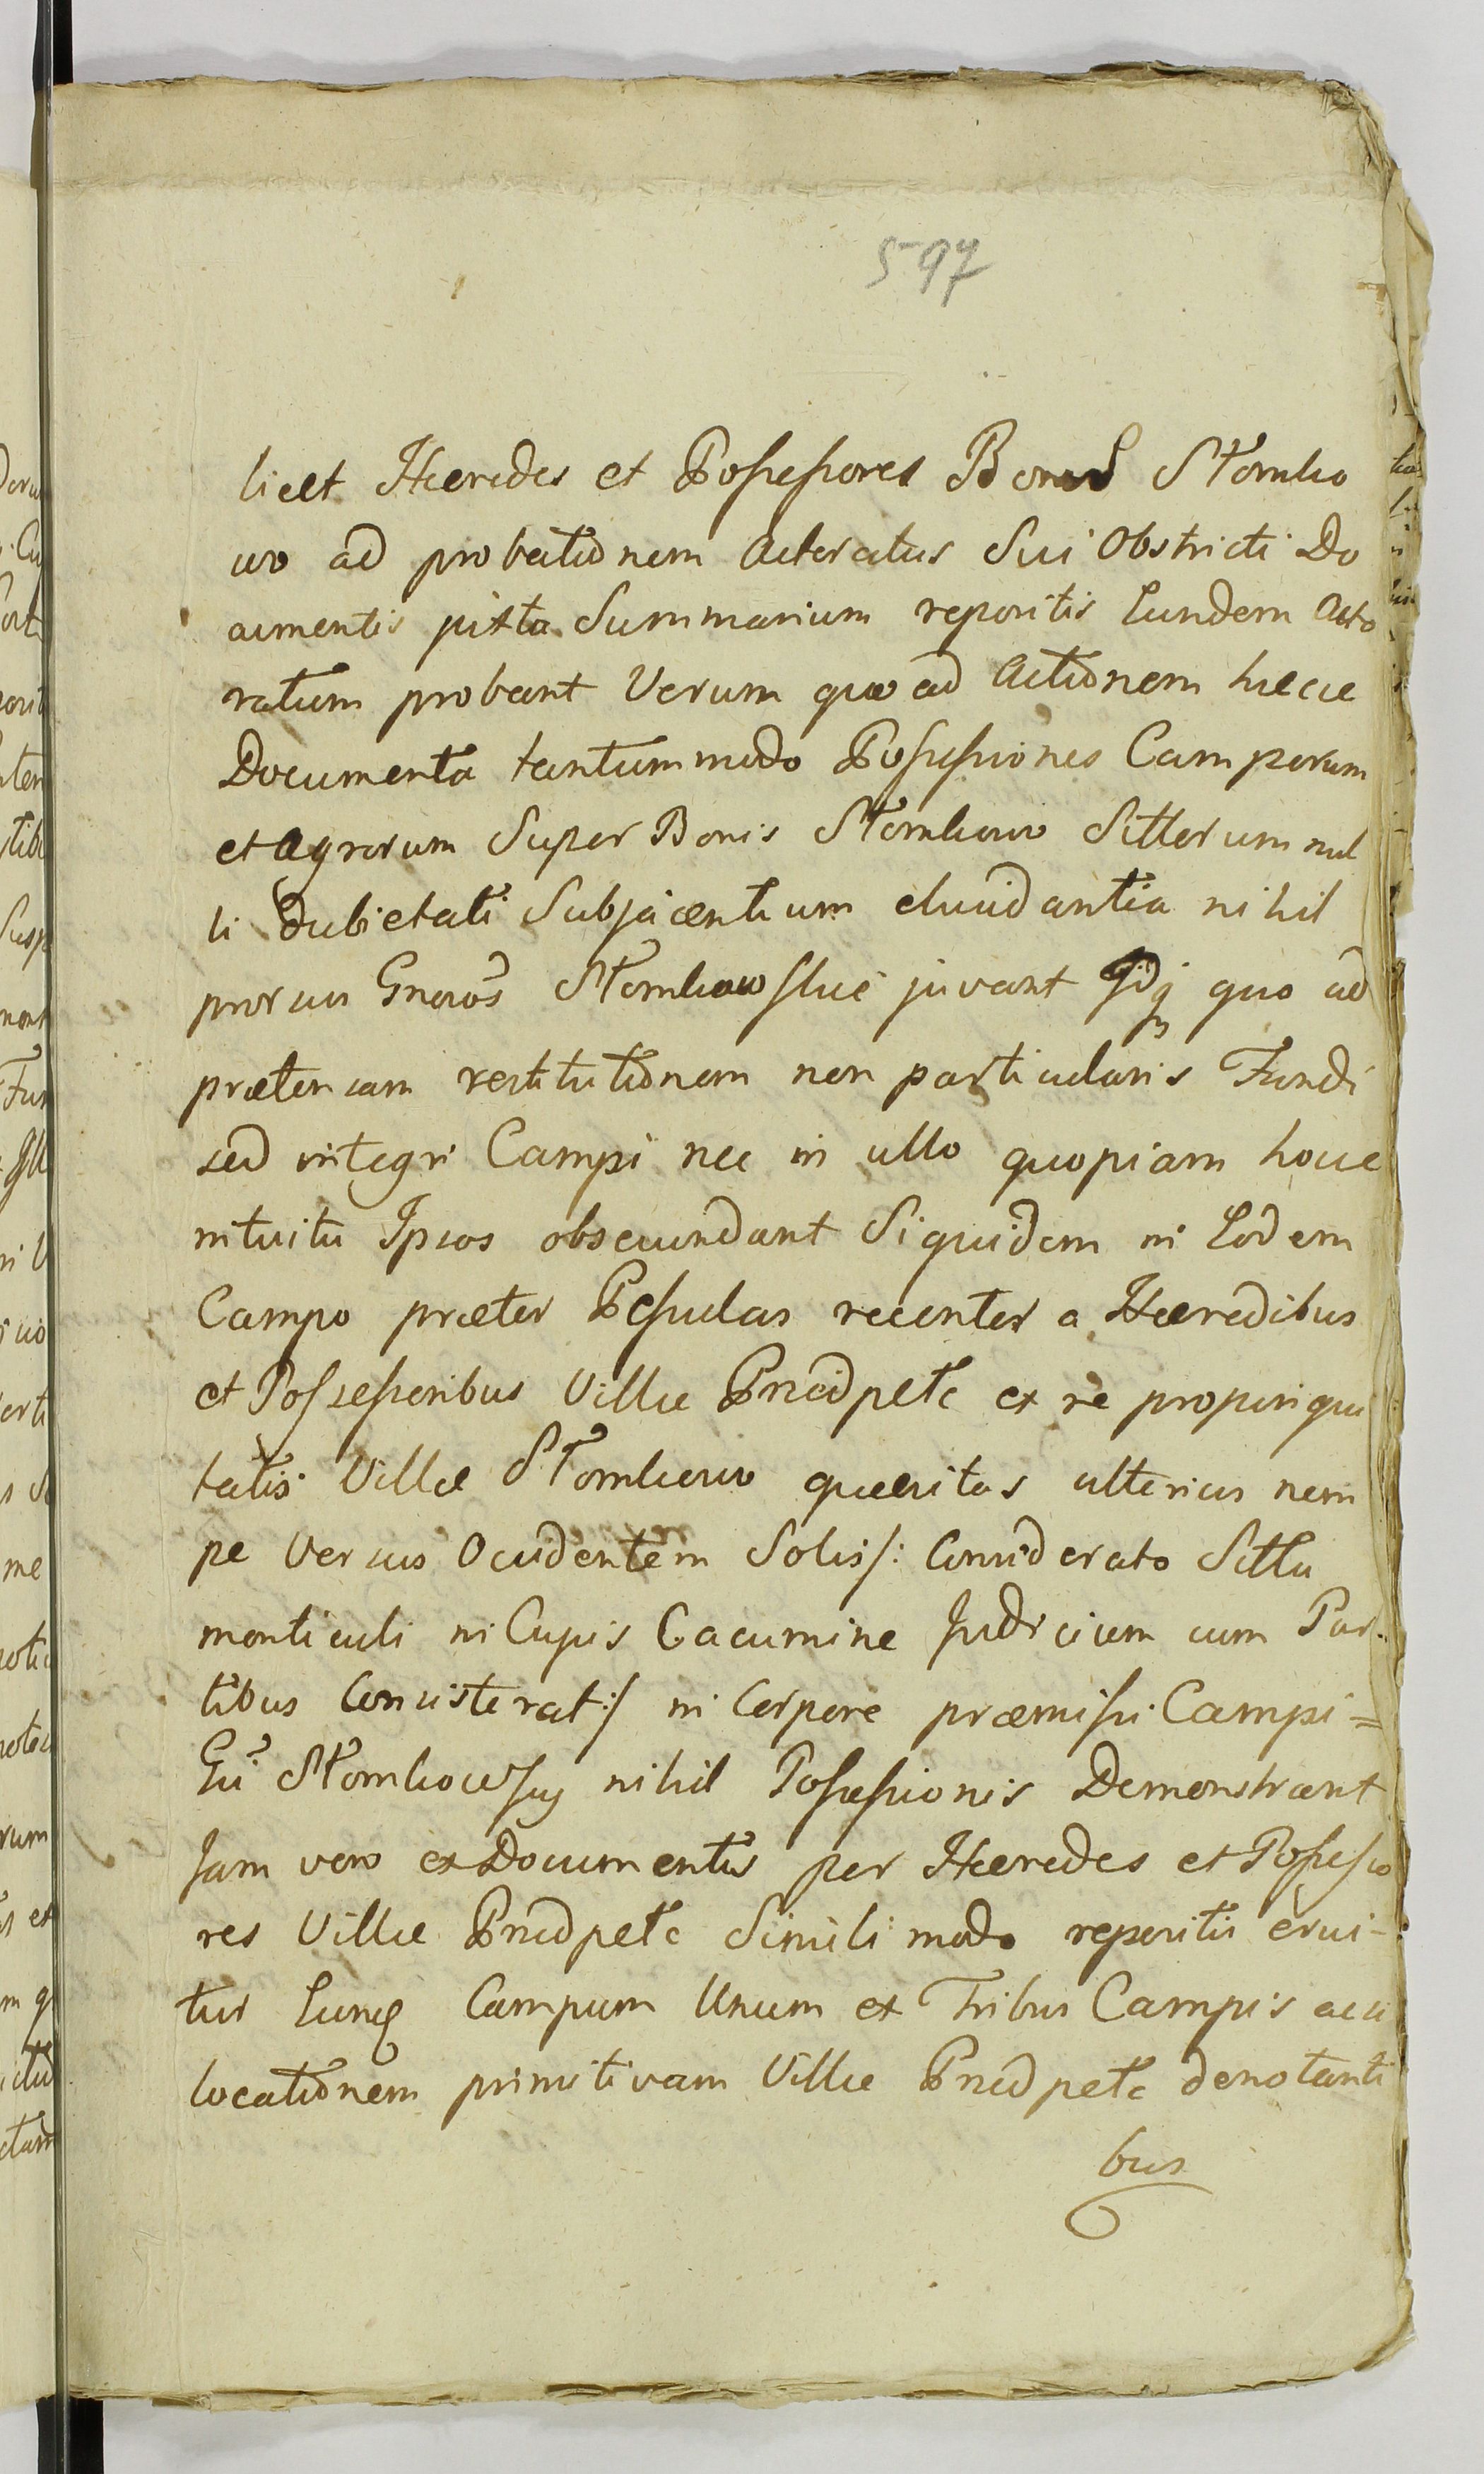 597
licet Hæredes et Possessores Bonor Stomko
wo ad probationem Actoratus Sui Obstricti Do
cumentis juxta Summarium repositis Eundem Acto
ratum probant Verum quo ad Actionem hæcce
Documenta tantummodo Possessiones Camporum
et Agrorum Super Bonis Stomkowo Sittorum nul
li Dubietati Subjacentium elucidantia nihil
prorsus Gnosos Stomkowskie juvant quo ad
prætensam restitutionem non particularis Fundi
sed integri Campi nec in ullo quopiam hocce
intuitu Ipsos obsecundant Siquidem in Eodem
Campo præter Pessulas recenter a Hæredibus
et Possessoribus Villæ Przedpełc ex re propinqui
tatis Villæ Stomkowo quæsitas ulterius nem
pe Versus Occidentem Solis/: Considerato Sittu
monticuli in Cujus Cacumine Judicium cum Par
tibus Consisterat :/ in Corpore præmissi Campi =
Gsi Stomkowscy nihil Possessionis Demonstrant
Jam vero ex Documentis per Hæredes et Possesso
res Villæ Przedpełc Simili modo repositis erui-
tur Eunq Campum Unum ex Tribus Campis acu
locationem primitivam Villæ Przedpełc denotanti
bus